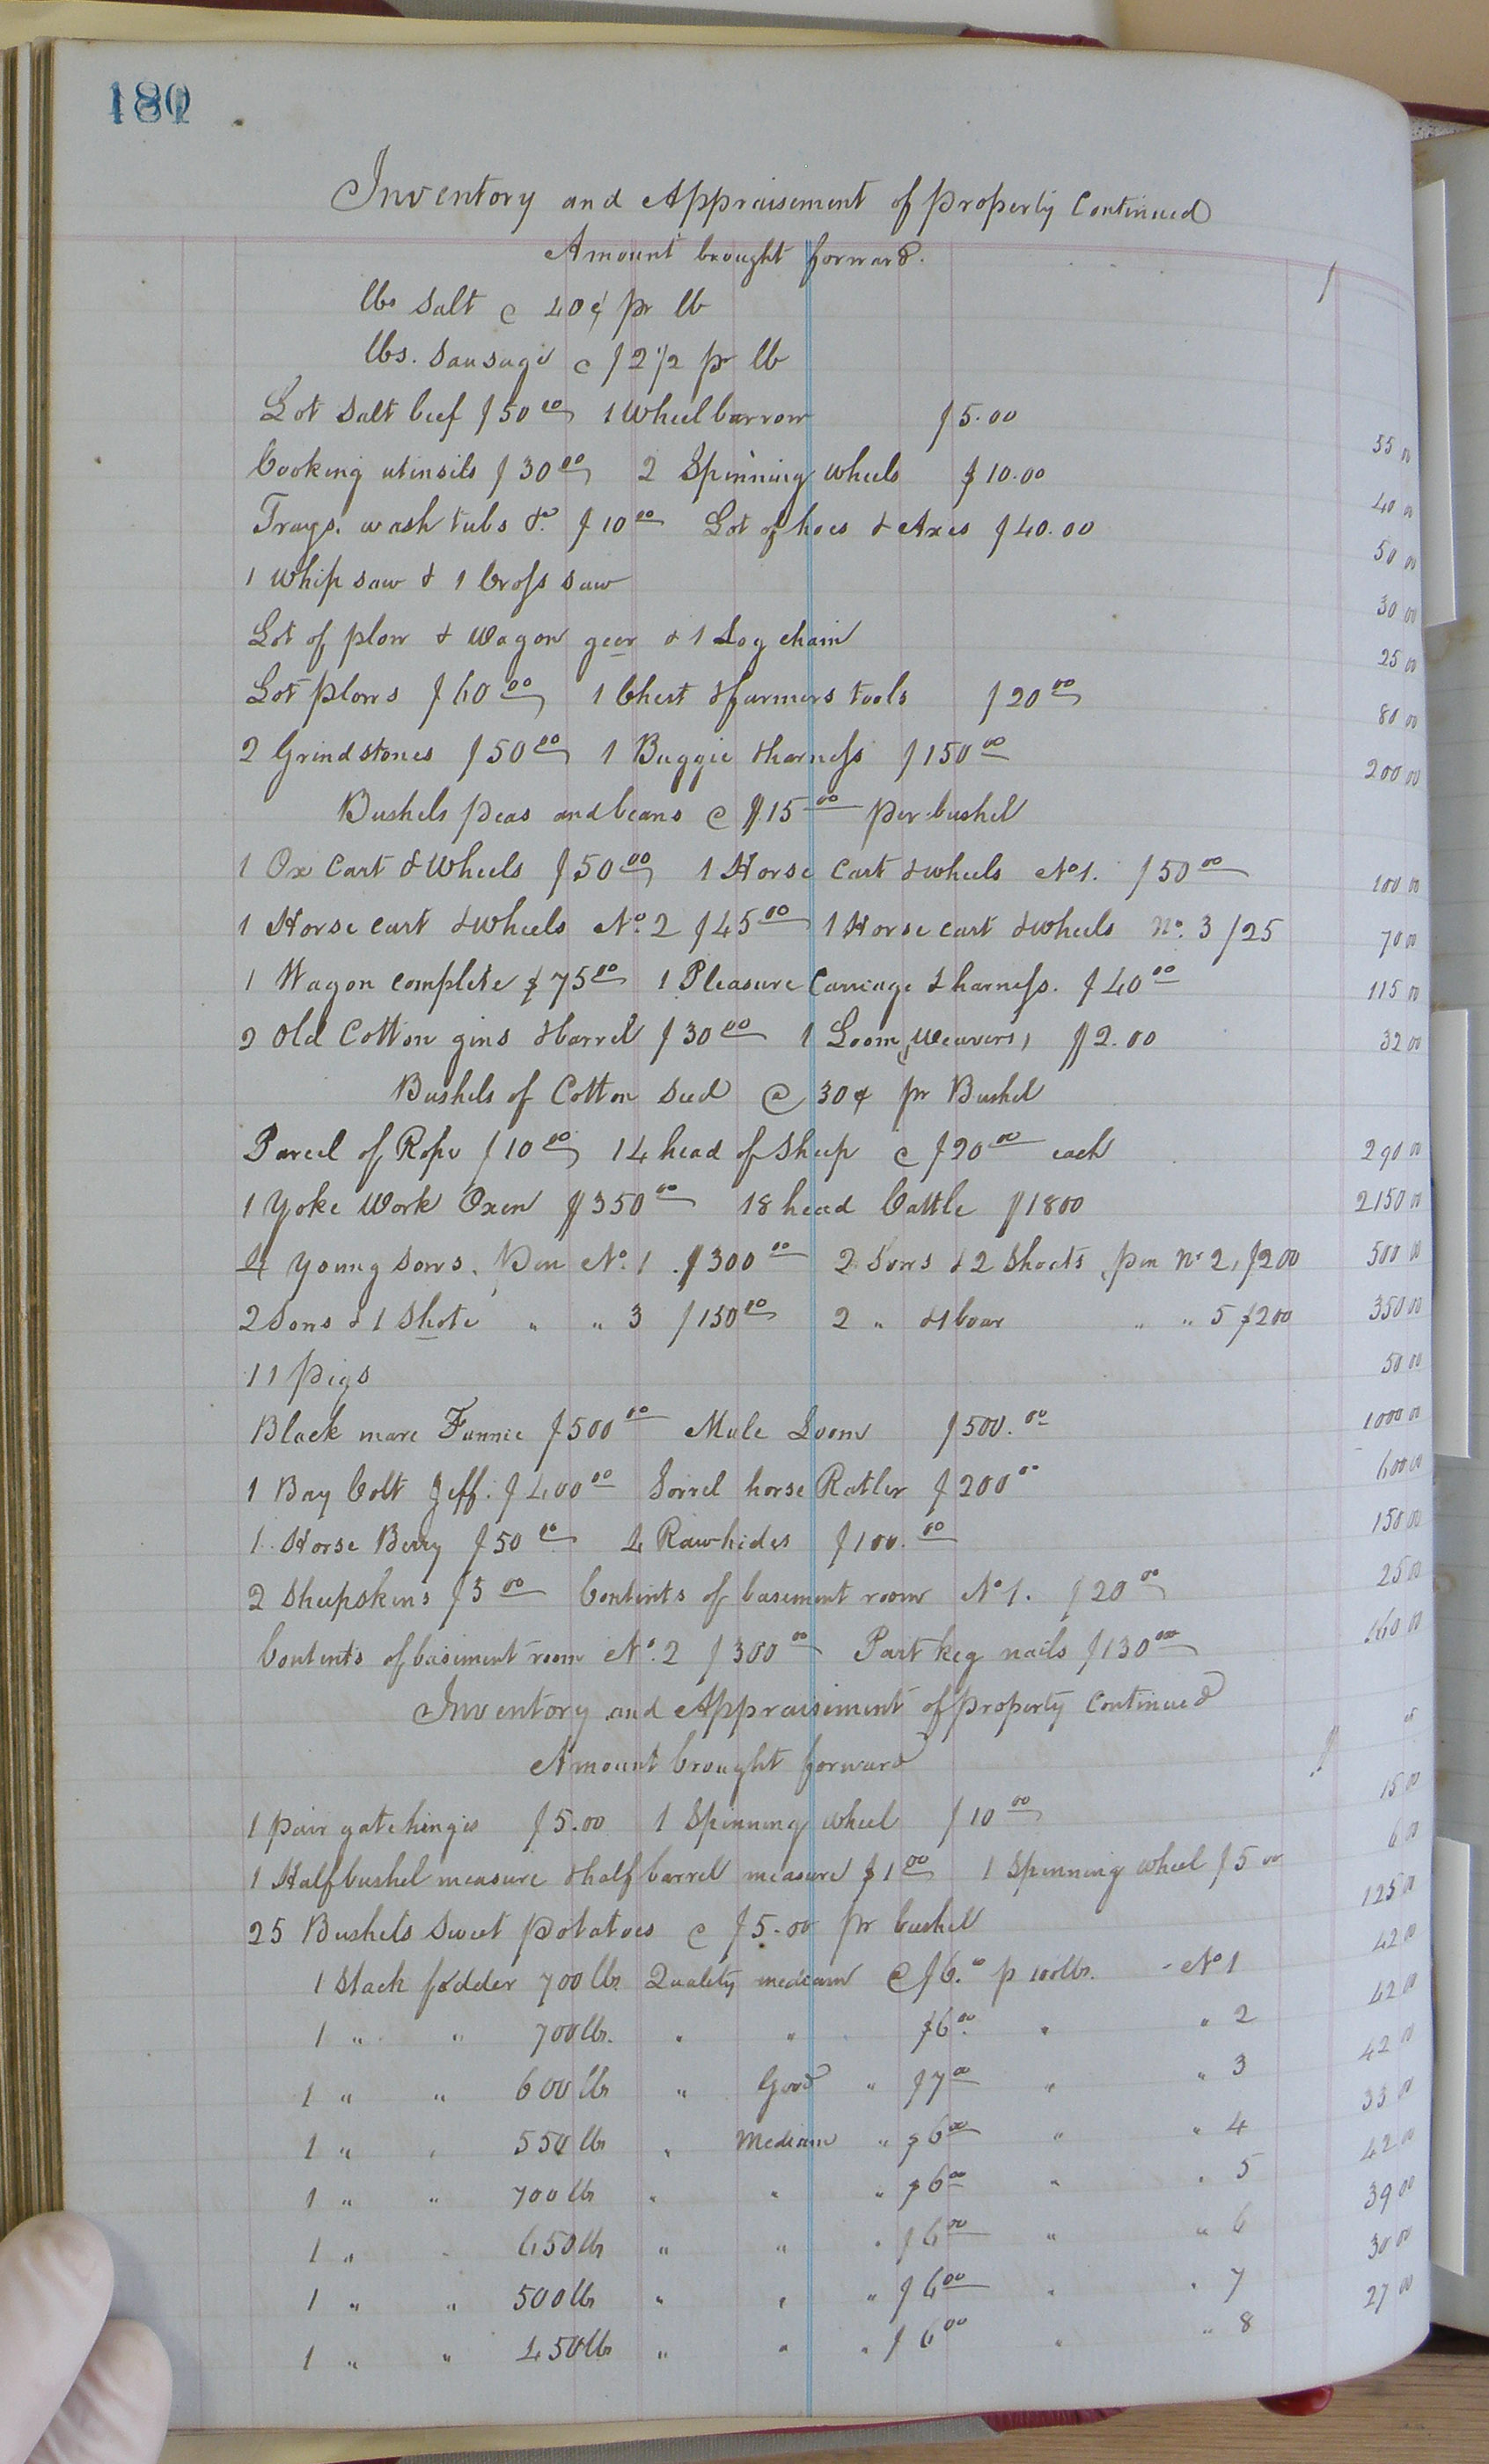 180
Inventory and Appraisement of property Continued
Amount brought forward. $
lbs Salt @ 40¢ pr lb
lbs. Sausage @ $2 1/2 pr lb
Lot Salt beef $50 00 1 Wheel barrow $5.00 55 00
Cooking utinsils $30 00 2 Spinning wheels $10.00 40 00
Trays, wash tubs &c $10 00 Lot of hoes & Axes $40.00 50 00
1 Whip saw & 1 Cross saw 30 00
Lot of plow & Wagon geer & 1 Log chain 25 00
Lot plows $60 00 1 Chest & farmers tools $20 00 80 00
2 Grindstones $50 00 1 Buggie & harness $150 00 200 00
Bushels peas and beans @ $15 00 per bushel
1 Ox Cart & Wheels $50 00 1 Horse Cart & wheels No 1. $50 00 100 00
1 Horse cart & wheels No. 2 $45 00 1 Horse cart & wheels No. 3 $25 70 00
1 Wagon complete $75 00 1 Pleasure Carriage & harness. $40 00 115 00
2 Old Cotton gins & barrel $30 00 1 Loom (Weavers) $2.00 32 00
Bushels of Cotton Seed @ 30¢ pr Bushel
Parcel of Rope $10 00 14 head of Sheep @ $20 00 each 290 00
1 Yoke Work Oxen $350 00 18 head Cattle $1800 2150 00
4 Young Sows, Pen No. 1. $300 00 2 Sows & 2 Shoats, pen No 2, $200 500 00
2 Sows & 1 Shote " " 3 $150 00 2 " & 1 boar " " 5 $200 350 00
11 pigs 50 00
Black mare Fannie $500 00 Mule Loom $500. 00 1000 00
1 Bay Colt Jeff. $400 00 Sorrel horse Ratler $200 00 600 00
1 Horse Berry $50 00 4 Rawhides $100. 00 150 00
2 Sheepskins $5 00 Contents of basement room No 1. $20 00 25 00
Contents of basement room No. 2 $300 00 Part keg nails $130 00
Inventory and Appraisement of property Continued
Amount brought forward $
1 pair gate hinges $5.00 1 Spinning wheel $10 00 15 00
1 Half bushel measure & half barrel measure $1 00 1 Spinning wheel $5 00 6 00
25 Bushels Sweet potatoes @ $5.00 pr bushel 125 00
1 Stack fodder 700 lbs. Quality medium @ $6. 00 p 100 lbs. - No 1 42 00
1 " " 700 lbs. " " $6 00 " " 2 42 00
1 " " 600 lbs " Good " $7 00 " " 3 42 00
1 " " 550 lbs " Medium " $6 00 " " 4 33 00
1 " " 700 lbs " " " $6 00 " " 5 42 00
1 " " 650 lbs " " " $6 00 " " 6 39 00
1 " " 500 lbs " " " $6 00 " " 7 30 00
1 " " 450 lbs " " " $6 00 " " 8 27 00